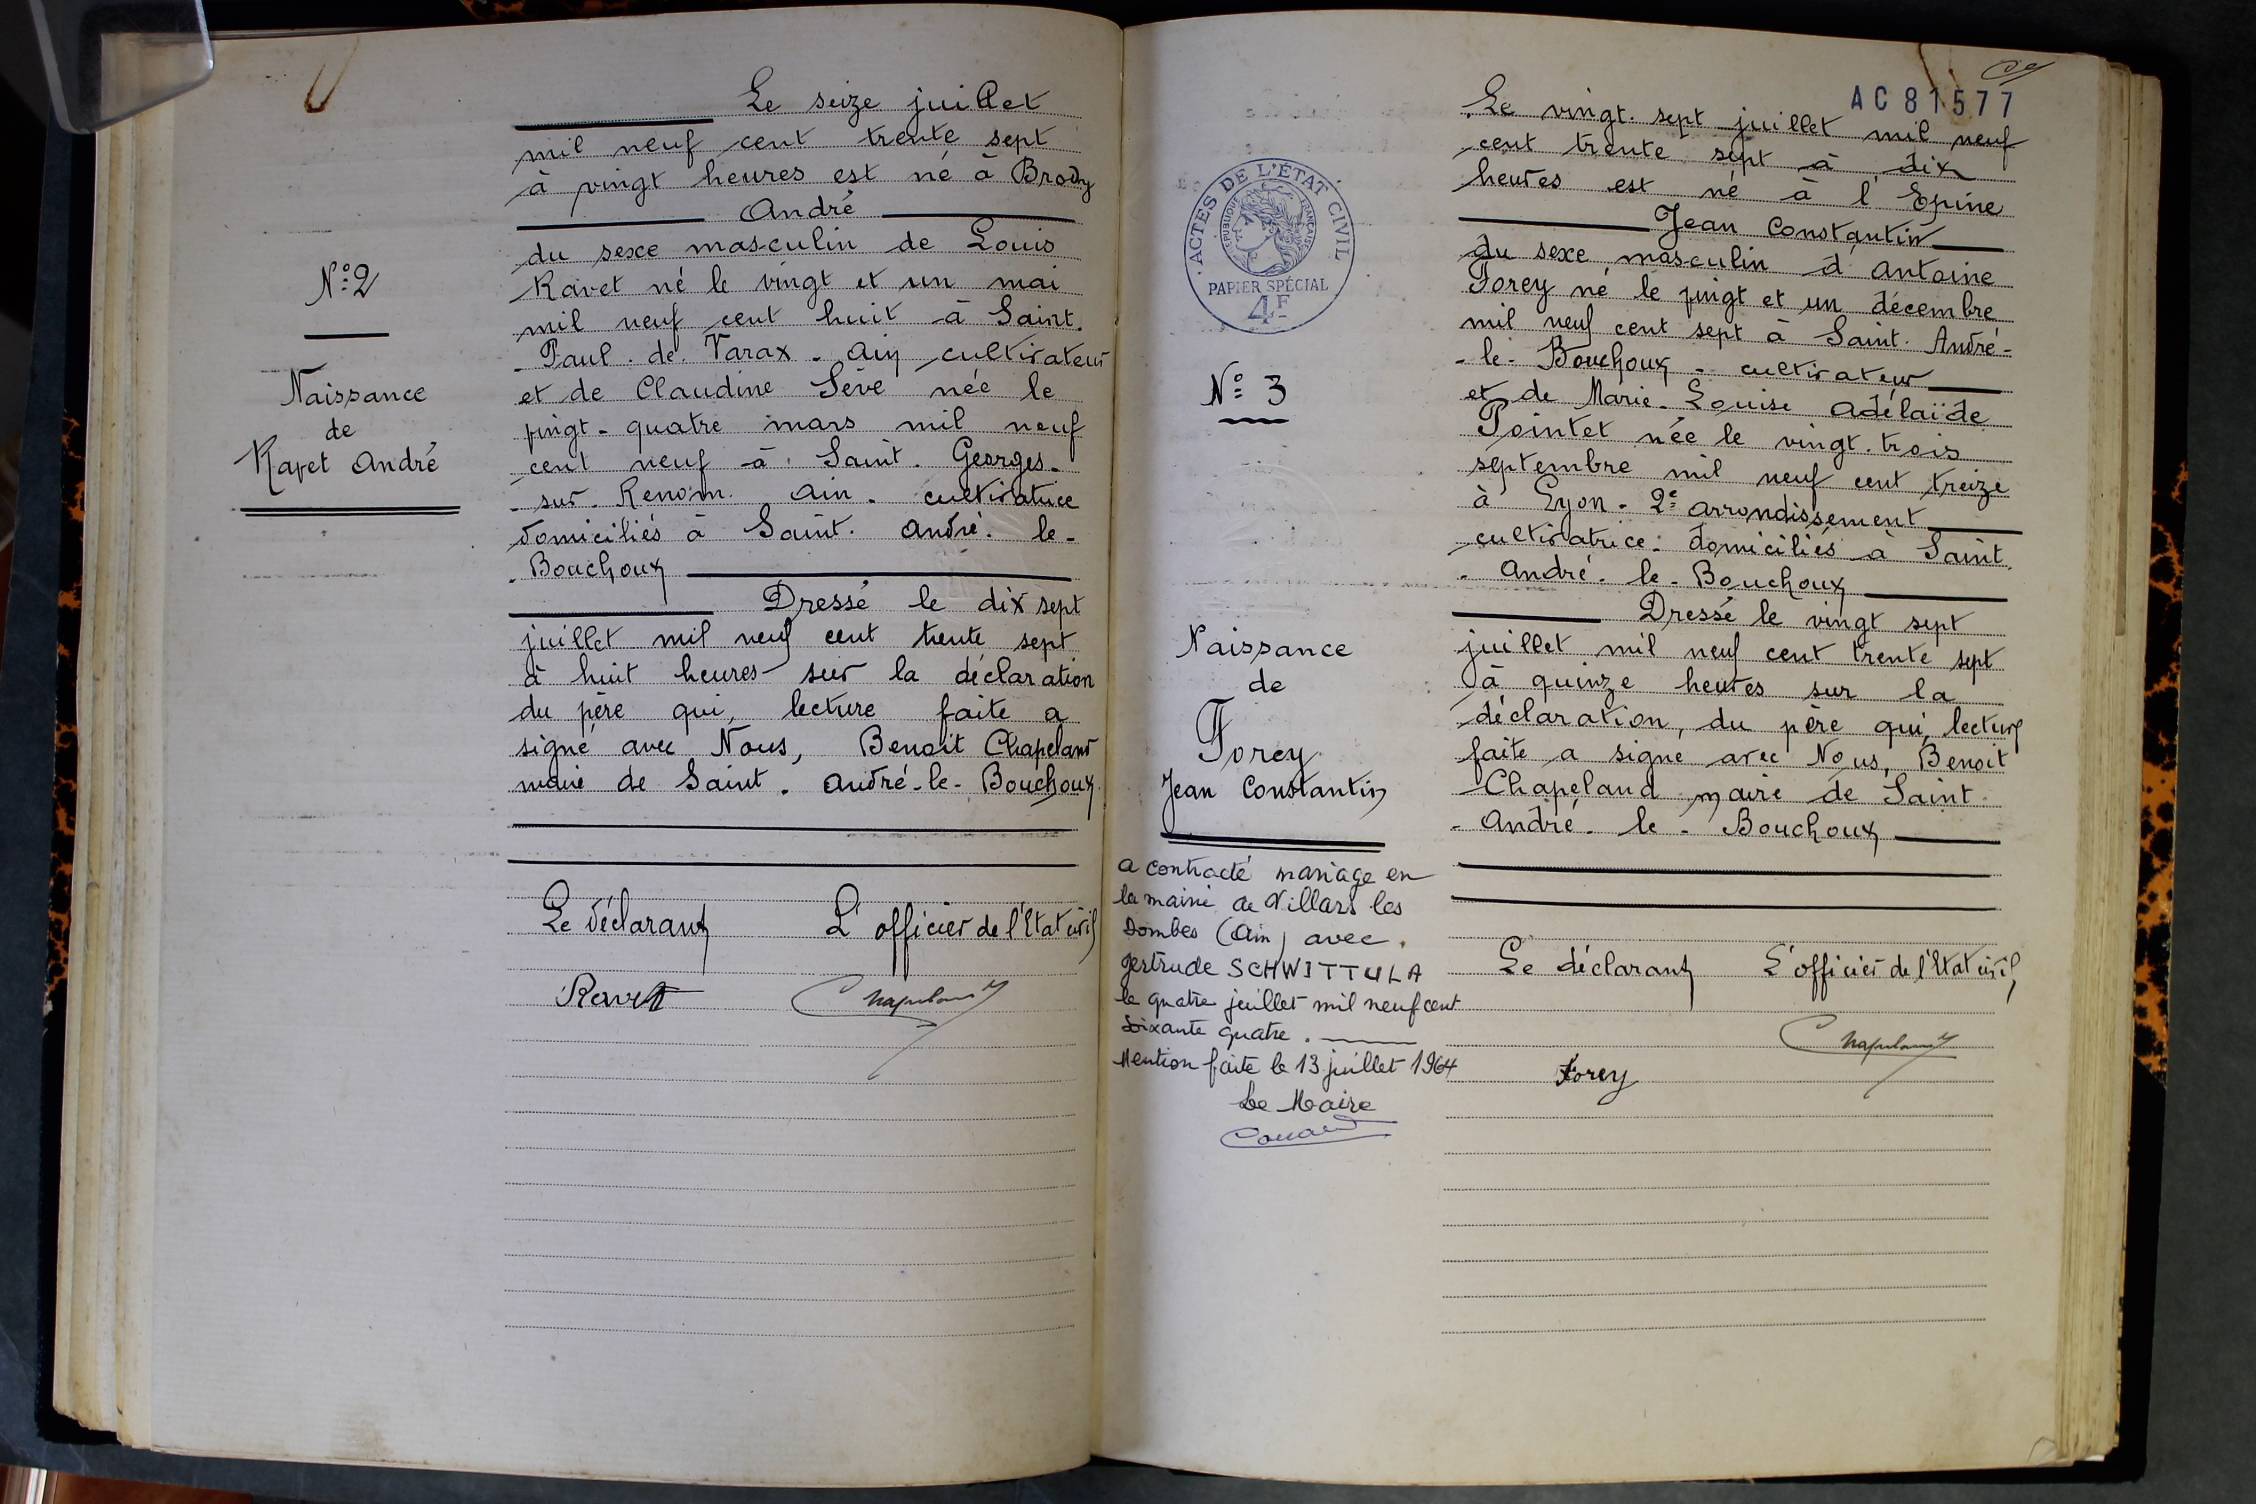 Le seize juillet
mil neuf cent trente sept
à vingt heures est né à Brody
André
du sexe masculin de Louis
Ravet né le vingt et un mai
mil neuf cent huit à Saint.
- Paul. de. Varax - Ain cultivateur
et de Claudine Sève née le
vingt-quatre mars mil neuf
cent neuf à Saint. Georges-
- sur-Renom. Ain. cultivatrice
domiciliés à Saint. André. le-
- Bouchoux
Dressé le dix sept
juillet mil neuf cent trente sept
à huit heures sur la déclaration
du père qui, lecture faite a
signé avec Nous, Benoit Chapeland
maire de Saint. André-le-Bouchoux
Le déclarant L'officier de l'Etat civil
Ravet Chapeland
N° 2
Naissance
de
Ravet André
AC81577
ACTES DE L'ÉTAT CIVIL
RÉPUBLIQUE FRANÇAISE
PAPIER SPÉCIAL
4F
N° 3
Naissance
de
Forey
Jean Constantin
a contracté mariage en
la mairie de Villars les
Dombes (Ain) avec
Gertrude SCHWITTULA
le quatre juillet mil neuf cent
soixante quatre.
Mention faite le 13 juillet 1964
Le Maire
Le vingt. sept juillet mil neuf
cent trente sept à dix
heures est né à l'Epine
Jean Constantin
du sexe masculin d'Antoine
Forey né le vingt et un décembre
mil neuf cent sept à Saint. André-
- le-Bouchoux - cultivateur
et de Marie-Louise Adélaïde
Pointet née le vingt. trois
septembre mil neuf cent treize
à Lyon - 2e arrondissement
cultivatrice. domiciliés à Saint.
- André. le-Bouchoux
Dressé le vingt sept
juillet mil neuf cent trente sept
à quinze heures sur la
déclaration, du père qui, lecture
faite a signé avec Nous, Benoit
Chapeland maire de Saint
- André. le - Bouchoux
Le déclarant L'officier de l'Etat civil
Chapeland
Forey